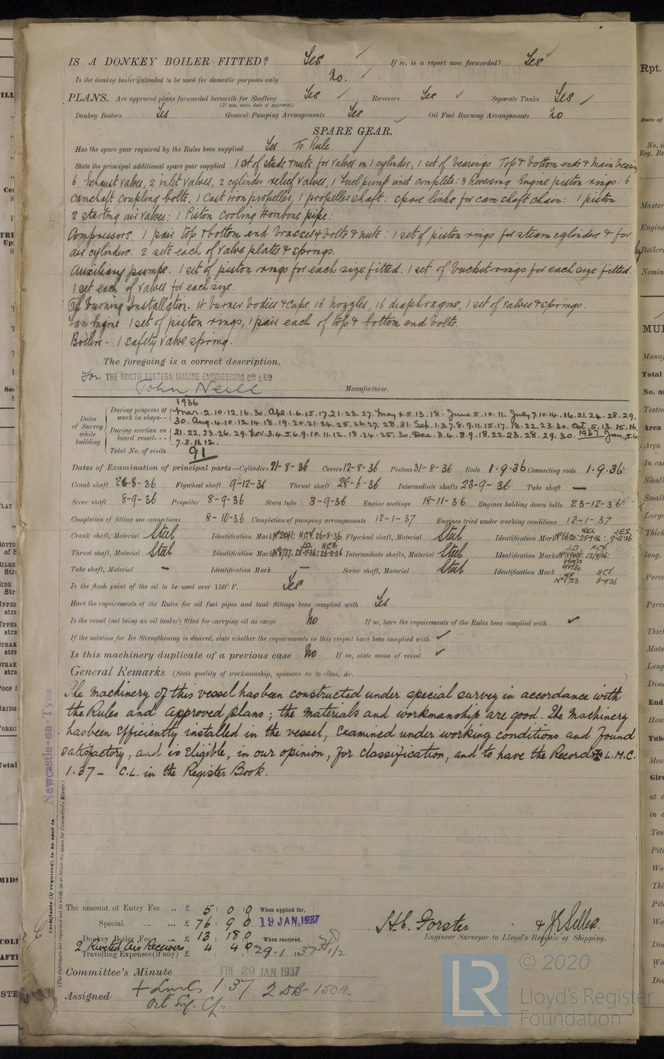 IS A DONKEY BOILER FITTED? Yes ✓ If so, is a report now forwarded? Yes ✓
Is the donkey boiler intended to be used for domestic purposes only no. ✓
PLANS. Are approved plans forwarded herewith for Shafting Yes ✓ Receivers Yes ✓ Separate Tanks Yes ✓
(If not, state date of approval)
Donkey Boilers Yes General Pumping Arrangements Yes Oil Fuel Burning Arrangements no
SPARE GEAR.
Has the spare gear required by the Rules been supplied Yes To Rule.
State the principal additional spare gear supplied 1 set of studs & nuts for valves on 1 cylinder, 1 set of bearings Top & bottom ends & main bearing
6 Exhaust valves, 2 inlet valves, 2 cylinder relief valves, 1 Fuel pump unit complete: 3 Reversing Engine piston rings. 6
camshaft coupling bolts, 1 Cast iron propeller, 1 propeller shaft: spare links for cam shaft chain: 1 piston
2 starting air valves: 1 Piston cooling trombone pipe:
Compressors. 1 pair top & bottom end brasses & bolts & nuts: 1 set of piston rings for steam cylinders & for
air cylinders: 2 sets each of valve plates & springs.
Auxiliary pumps. 1 set of piston rings for each size fitted. 1 set of bucket rings for each size fitted.
1 set each of valves for each size.
Oil burning installation. 4 burner bodies & caps, 16 nozzles, 16 diaphragms, 1 set of valves & springs.
engine 1 set of piston rings, 1 pair each of top & bottom end bolts.
Boiler - 1 safety valve spring.
The foregoing is a correct description,
For THE NORTH EASTERN MARINE ENGINEERING Co LTD
John Neill Manufacturer.
1936
Dates of Survey while building
During progress of work in shops -- Mar. 2. 10. 12. 16. 30. Apr. 1. 6. 15. 17. 21. 23. 27. May 4. 5. 13. 18. June 5. 10. 11. July 7. 10. 14. 16. 21. 24. 28. 29.
30. Aug. 4. 10. 12. 14. 18. 19. 20. 21. 24. 25. 26. 27. 28. 31. Sep. 1. 3. 7. 8. 9. 11. 15. 17. 18. 22. 23. 30. Oct. 5. 13. 15.
During erection on board vessel --- 21. 22. 23. 26. 29. Nov. 3. 4. 5. 6. 9. 10. 11. 12. 18. 24. 25. 30. Dec. 3. 4. 8. 9. 18. 22. 23. 28. 29. 30. 1937 Jan. 5. 6
7. 8. 11. 12.
Total No. of visits 91
Dates of Examination of principal parts—Cylinders 21-8-36 Covers 12-8-36 Pistons 31-8-36 Rods 1-9-36 Connecting rods 1-9-36
Crank shaft 26-8-36 Flywheel shaft 9-12-36 Thrust shaft 28-8-36 Intermediate shafts 23-9-36 Tube shaft —
Screw shaft 8-9-36 Propeller 8-9-36 Stern tube 3-9-36 Engine seatings 18-11-36 Engines holding down bolts 23-12-36
Completion of fitting sea connections 8-10-36 Completion of pumping arrangements 12-1-37 Engines tried under working conditions 12-1-37
Crank shaft, Material Steel Identification Mark Flywheel shaft, Material Steel Identification Mark
Thrust shaft, Material Steel Identification Mark Intermediate shafts, Material Steel Identification Marks
Tube shaft, Material — Identification Mark — Screw shaft, Material Steel Identification Mark
Is the flash point of the oil to be used over 150° F. Yes
Have the requirements of the Rules for oil fuel pipes and tank fittings been complied with Yes
Is the vessel (not being an oil tanker) fitted for carrying oil as cargo No If so, have the requirements of the Rules been complied with ✓
If the notation for Ice Strengthening is desired, state whether the requirements in this respect have been complied with ✓
Is this machinery duplicate of a previous case No If so, state name of vessel ✓
General Remarks (State quality of workmanship, opinions as to class, &c.
The machinery of this vessel has been constructed under special survey in accordance with
the Rules and approved plans; the materials and workmanship are good. The machinery
has been efficiently installed in the vessel, examined under working conditions and found
satisfactory, and is eligible, in our opinion, for classification, and to have the Record ✠ L.M.C.
1.37 - C.L. in the Register Book.
Newcastle-on-Tyne
Certificate (if required) to be sent to
The amount of Entry Fee .. £ 5 : 0 : 0 When applied for,
Special ... £ 76 : 0 : 0 19 JAN 1937
Donkey Boiler Fee £ 13 : 18 : 0 When received,
2 Riveted Air Receivers 4 : 4 : 0 29.1.1937
Travelling Expenses (if any) £
H.C. Forster & J. Selles.
Engineer Surveyor to Lloyd's Register of Shipping.
Committee's Minute FRI 29 JAN 1937
Assigned + LMC 1.37 2 DB - 150 lb
Oil Eng. CL
LR
© 2020
Lloyd's Register
Foundation